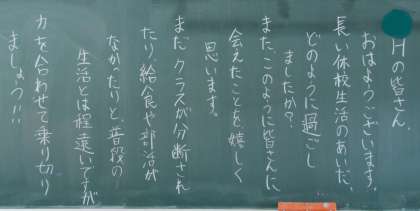 Hの皆さん
おはようございます。
長い休校生活のあいだ、
どのように過ごし
ましたか?
また、このように皆さんに
会えたことを嬉しく
思います。
まだクラスが分断され
たり、給食や部活が
なかったりと、普段の
生活とは程遠いですが
力を合わせて乗り切り
ましょう!!